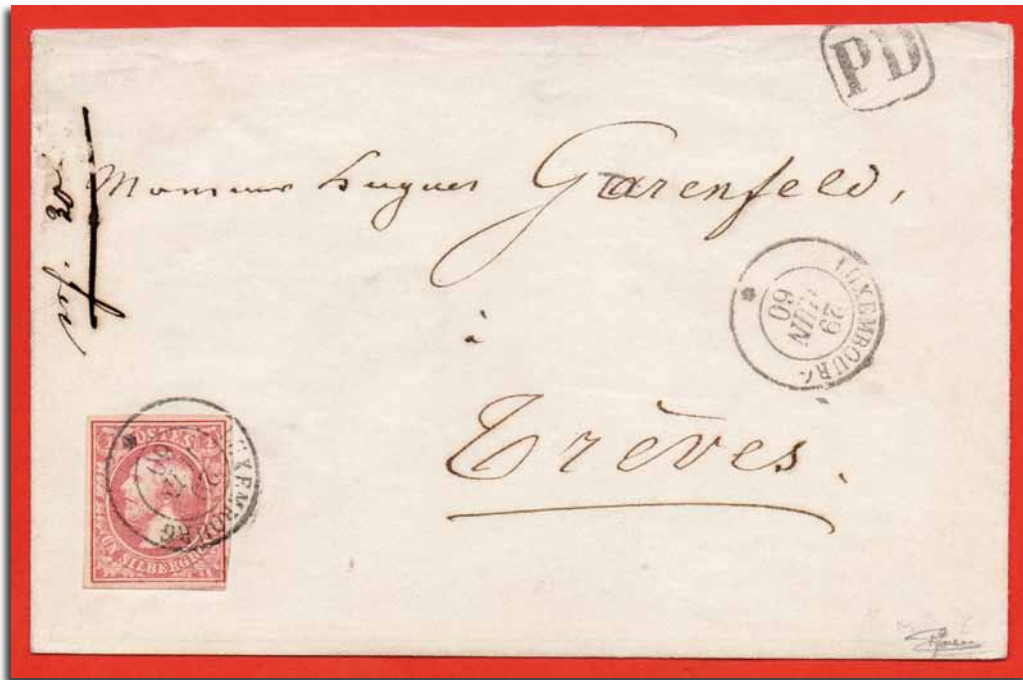 PD
Monsieur Hugues Garenfeld,
à
Trèves.
LUXEMBOURG
29
JUIN
60
POSTES
SILBERGR
LUXEMBOURG